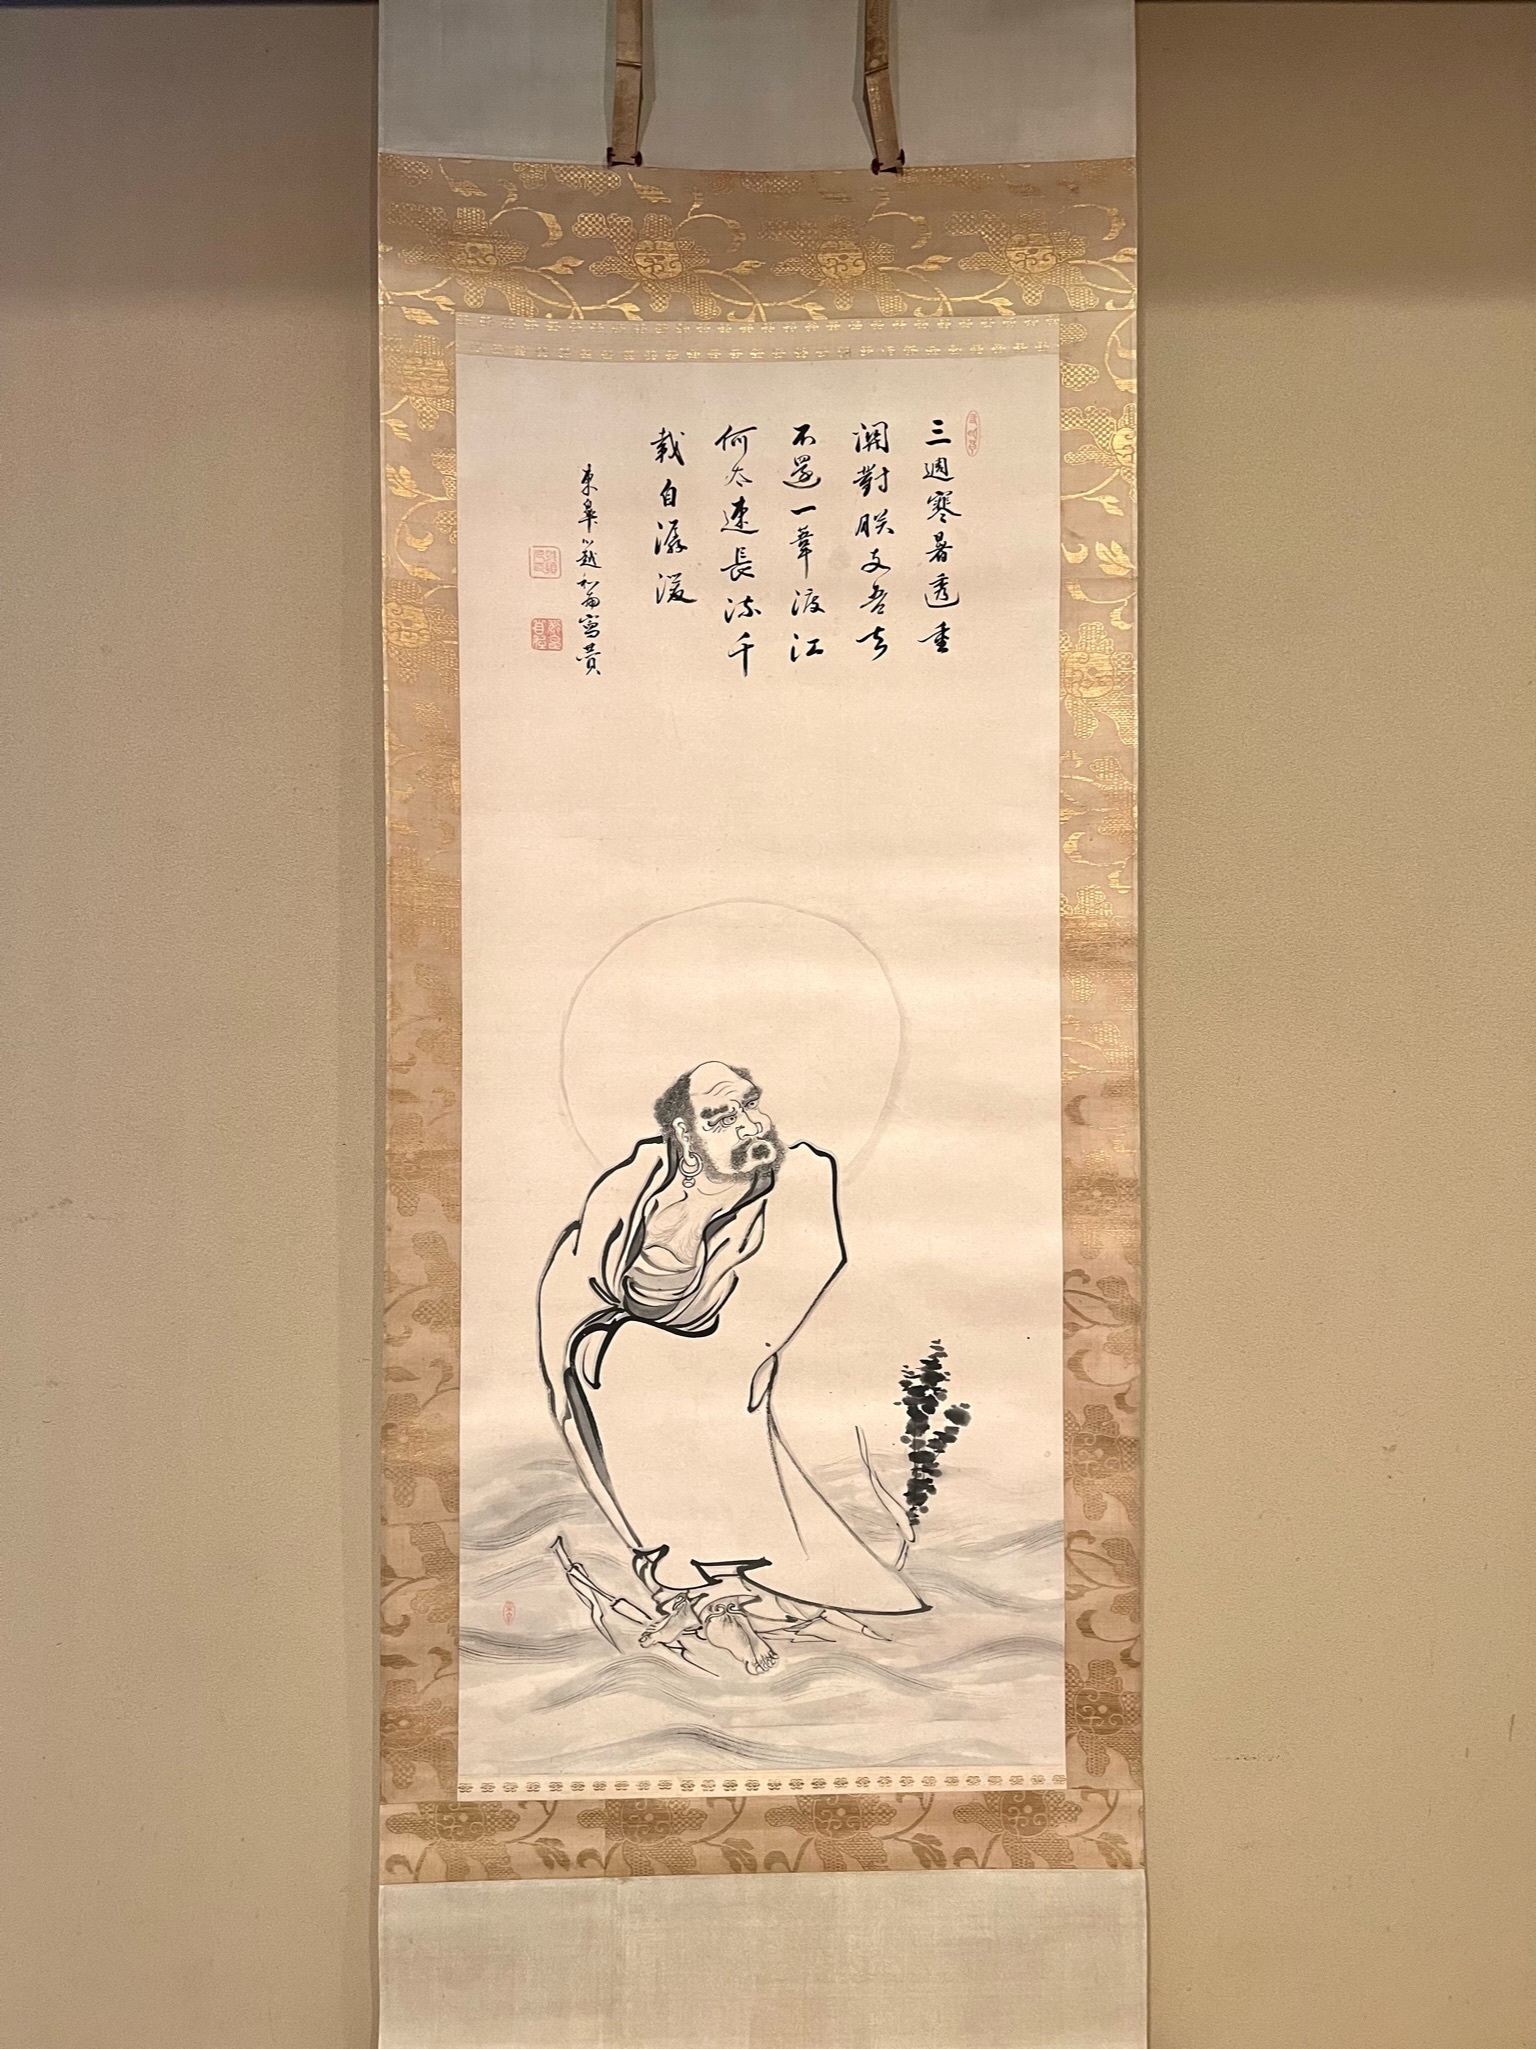 三週寒暑透重
関對朕支吾去
不還一葦渡江
何太速長流千
載自潺湲
東皐心越和南寫賛